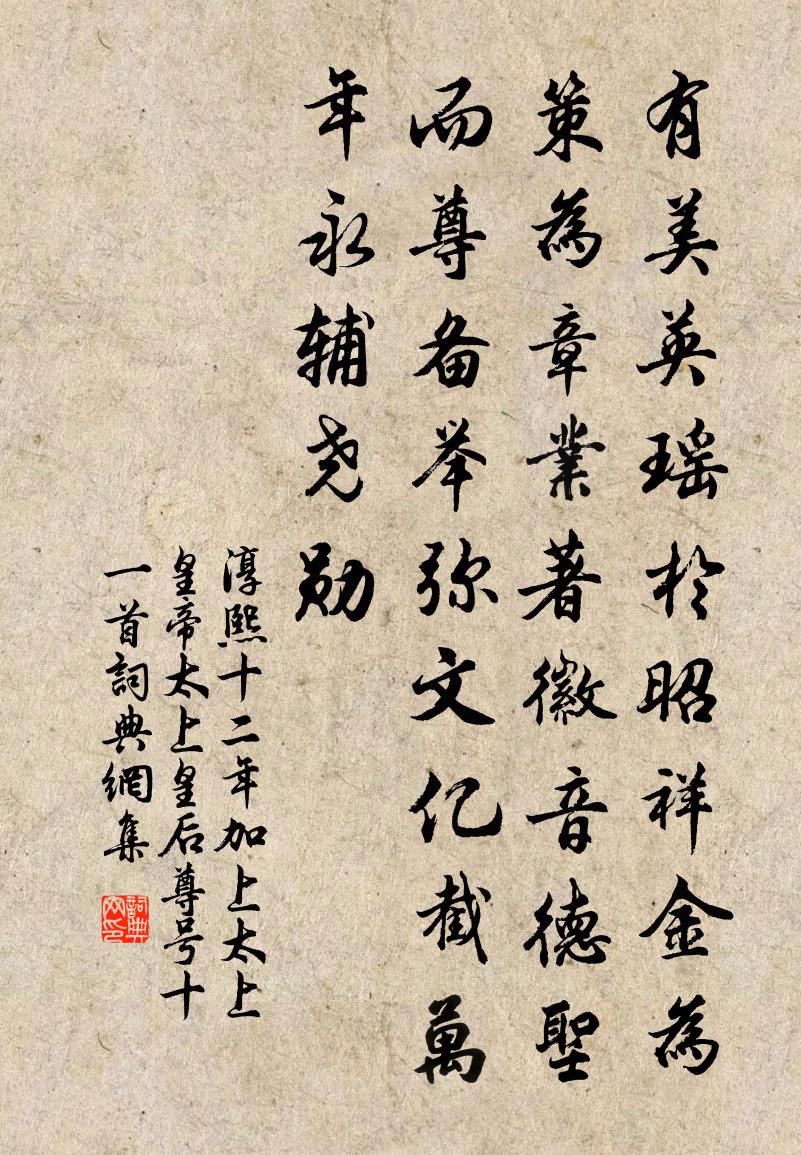 有美英瑶於昭祥金為
策為章業著徽音德聖
而尊备举弥文亿截萬
年永辅尧勋
淳熙十二年加上太上
皇帝太上皇后尊号十
一首詞典網集
詞典網印